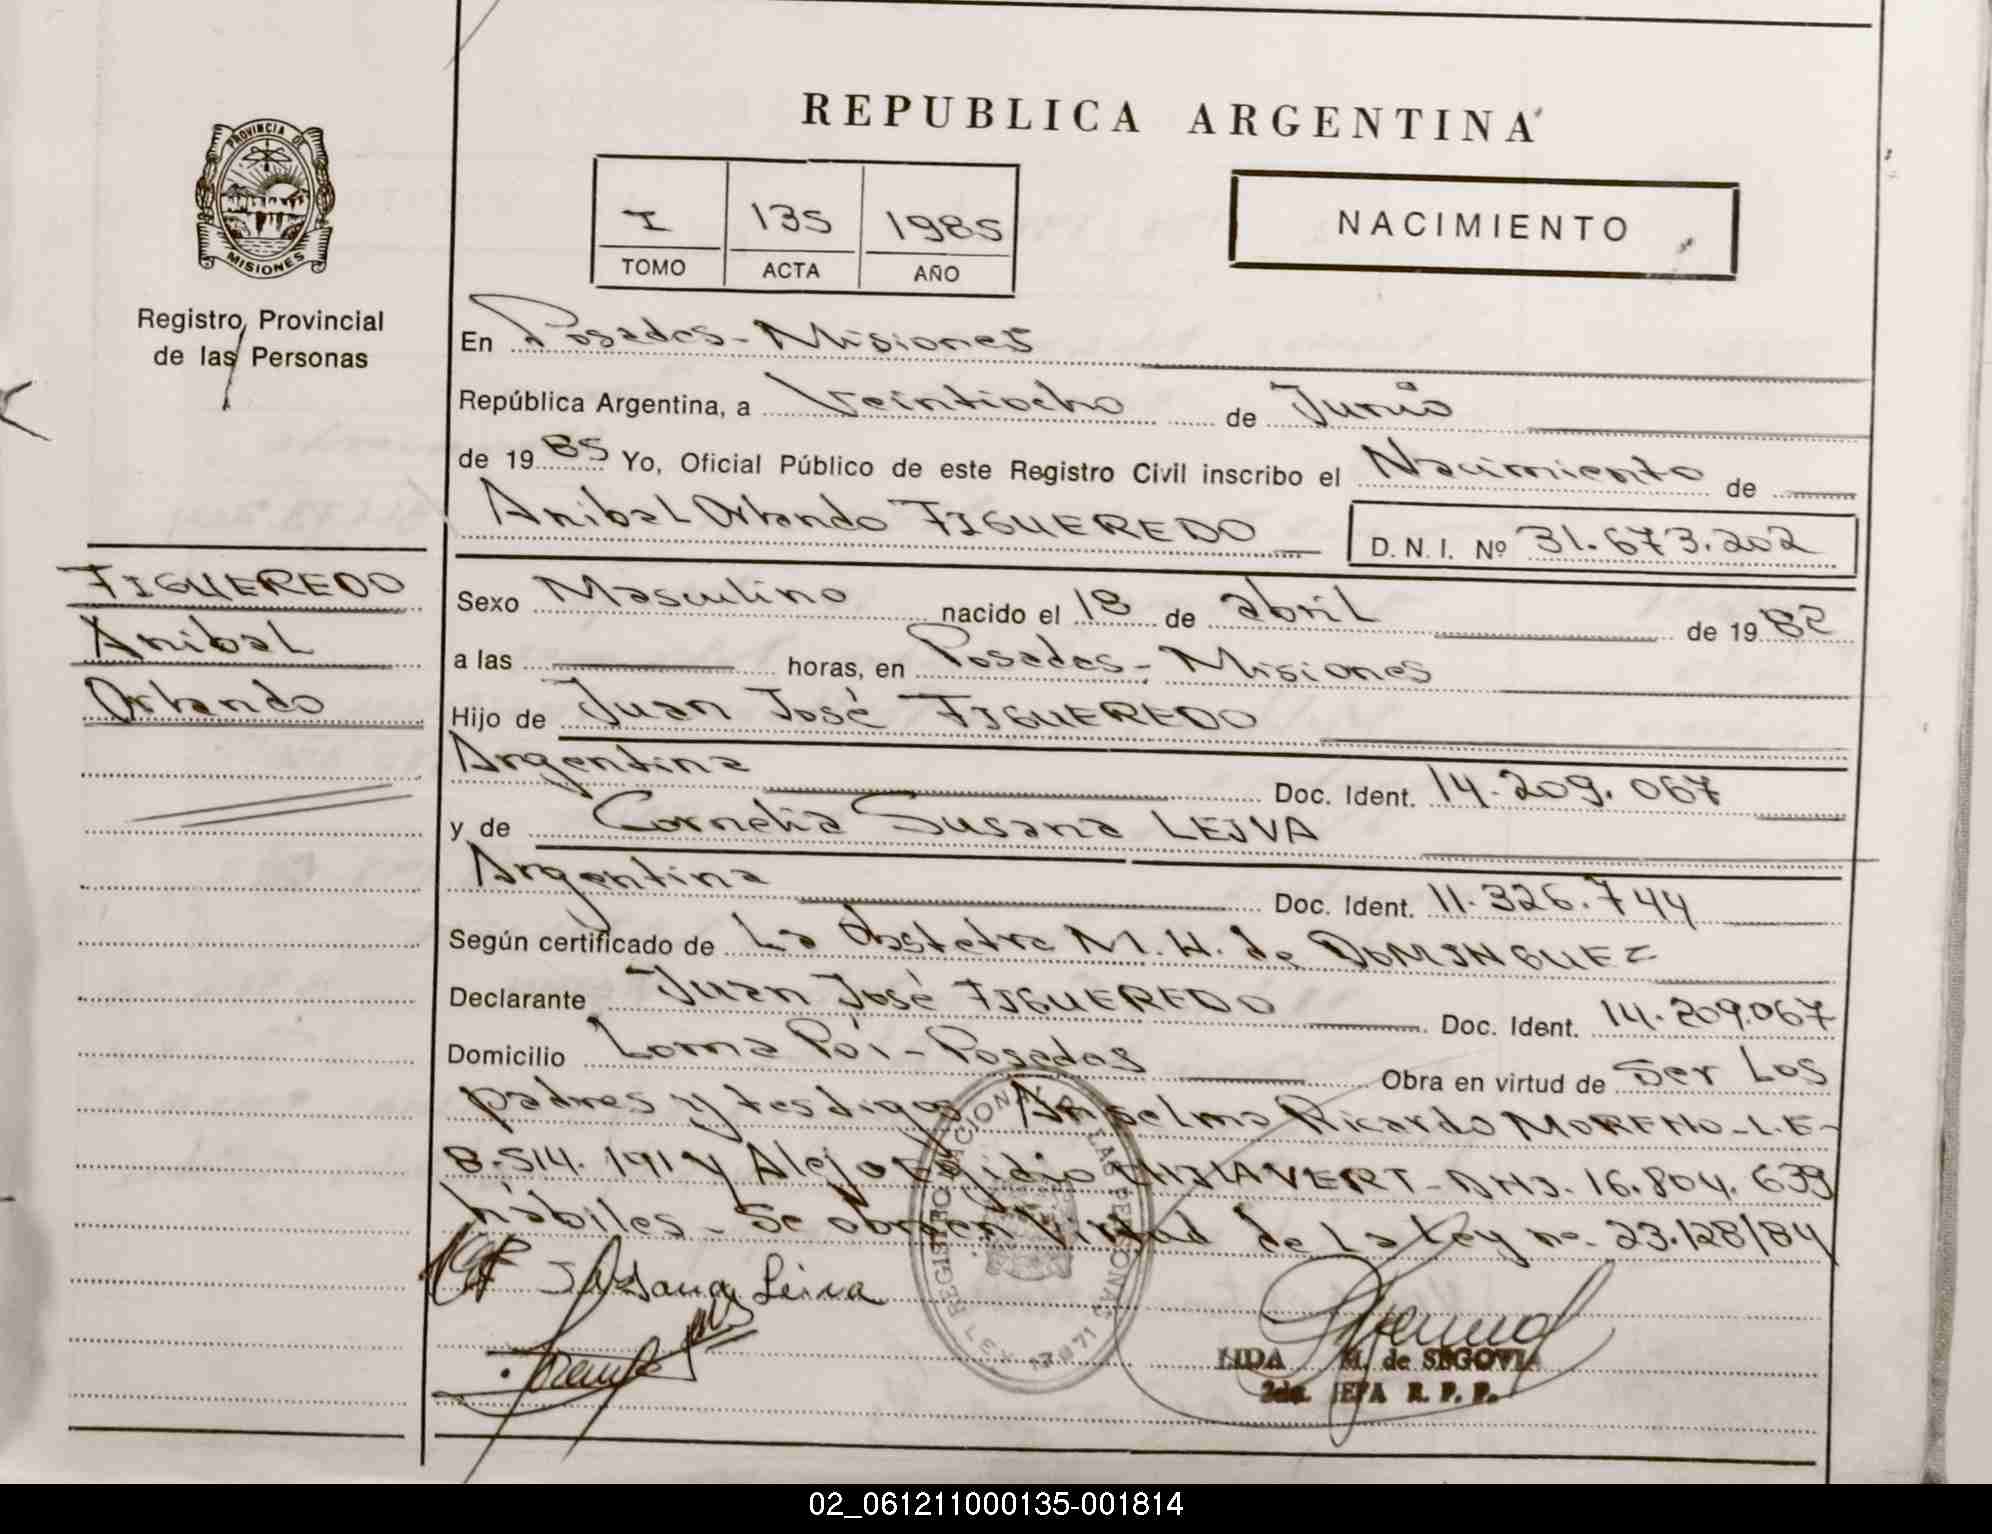 REPUBLICA ARGENTINA
PROVINCIA DE
MISIONES
Registro Provincial
de las Personas
I 135 1985
TOMO ACTA AÑO
NACIMIENTO
En Posadas - Misiones
República Argentina, a Veintiocho de Junio
de 1985 Yo, Oficial Público de este Registro Civil inscribo el Nacimiento de
Anibal Orlando FIGUEREDO D.N.I. Nº 31.673.202
FIGUEREDO
Anibal
Orlando
Sexo Masculino nacido el 18 de abril de 1982
a las horas, en Posadas - Misiones
Hijo de Juan José FIGUEREDO
Argentina Doc. Ident. 14.209.067
y de Cornelia Susana LEIVA
Argentina Doc. Ident. 11.326.744
Según certificado de La Obstetra M. H. de DOMINGUEZ
Declarante Juan José FIGUEREDO Doc. Ident. 14.209.067
Domicilio Loma Poi - Posadas Obra en virtud de Ser Los
padres y testigos Anselmo Ricardo MORENO - L.E-
8.514.191 y Alejo Egidio CHILAVERT - DNI. 16.804.639
hábiles - Se obra en Virtud de La Ley nº 23.128/84
Susana Leiva
REGISTRO NACIONAL DE LAS PERSONAS
LEY 17671
M. de SEGOVIA
2da. JEFA R. P. P.
02_061211000135-001814